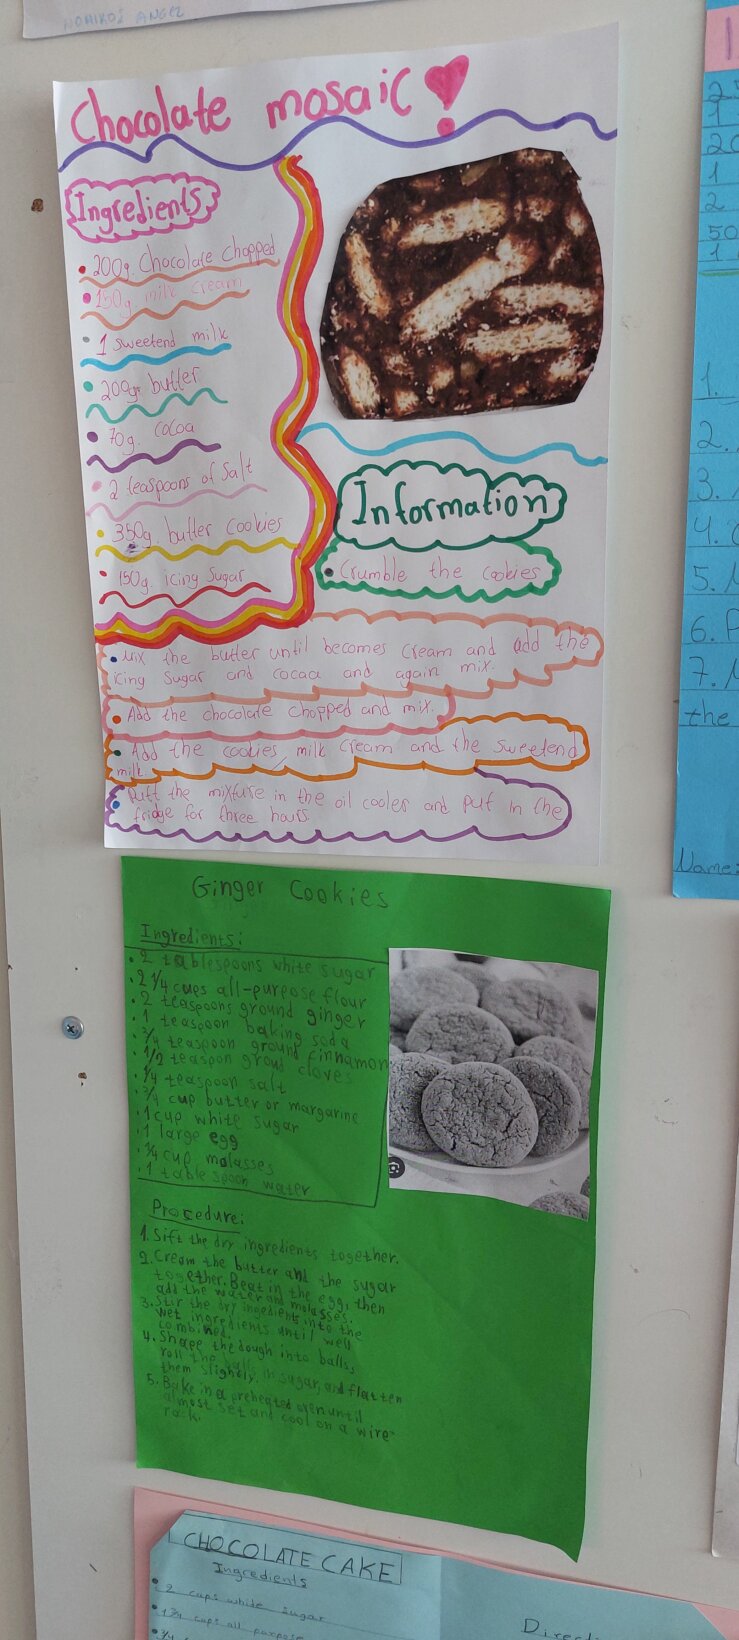 NOMIKOS ANGEL
Chocolate mosaic!
Ingredients
200g. Chocolate Chopped
150g. milk cream
1 sweetend milk
200gr. butter
70g. cocoa
2 teaspoons of Salt
350g. butter Cookies
150g. icing Sugar
Information
Crumble the cookies
Mix the butter until becomes Cream and add the
icing Sugar and cocoa and again mix.
Add the chocolate chopped and mix.
Add the cookies, milk cream and the sweetend
milk.
Putt the mixture in the oil cooler and put in the
fridge for three hours.
Ginger Cookies
Ingredients:
2 tablespoons white sugar
2 1/4 cups all-purpose flour
2 teaspoons ground ginger
1 teaspoon baking soda
3/4 teaspoon ground cinnamon
1/2 teaspoon groud cloves
1/4 teaspoon salt
3/4 cup butter or margarine
1 cup white sugar
1 large egg
1/4 cup molasses
1 table spoon water
Procedure:
1. Sift the dry ingredients together.
2. Cream the butter and the sugar
together. Beat in the egg, then
add the water and molasses.
3. Stir the dry ingedients into the
wet ingredients until well
combined.
4. Shape the dough into balls,
roll the balls in sugar, and flatten
them slightly.
5. Bake in a preheated oven until
almost set and cool on a wire
rack.
CHOCOLATE CAKE
Ingredients
2 cups white sugar
1 3/4 cups all purpose
3/4
Directi
1
20
1
2
50
1
1.
2.
3.
4.
5.
6.
7.
the
Name: